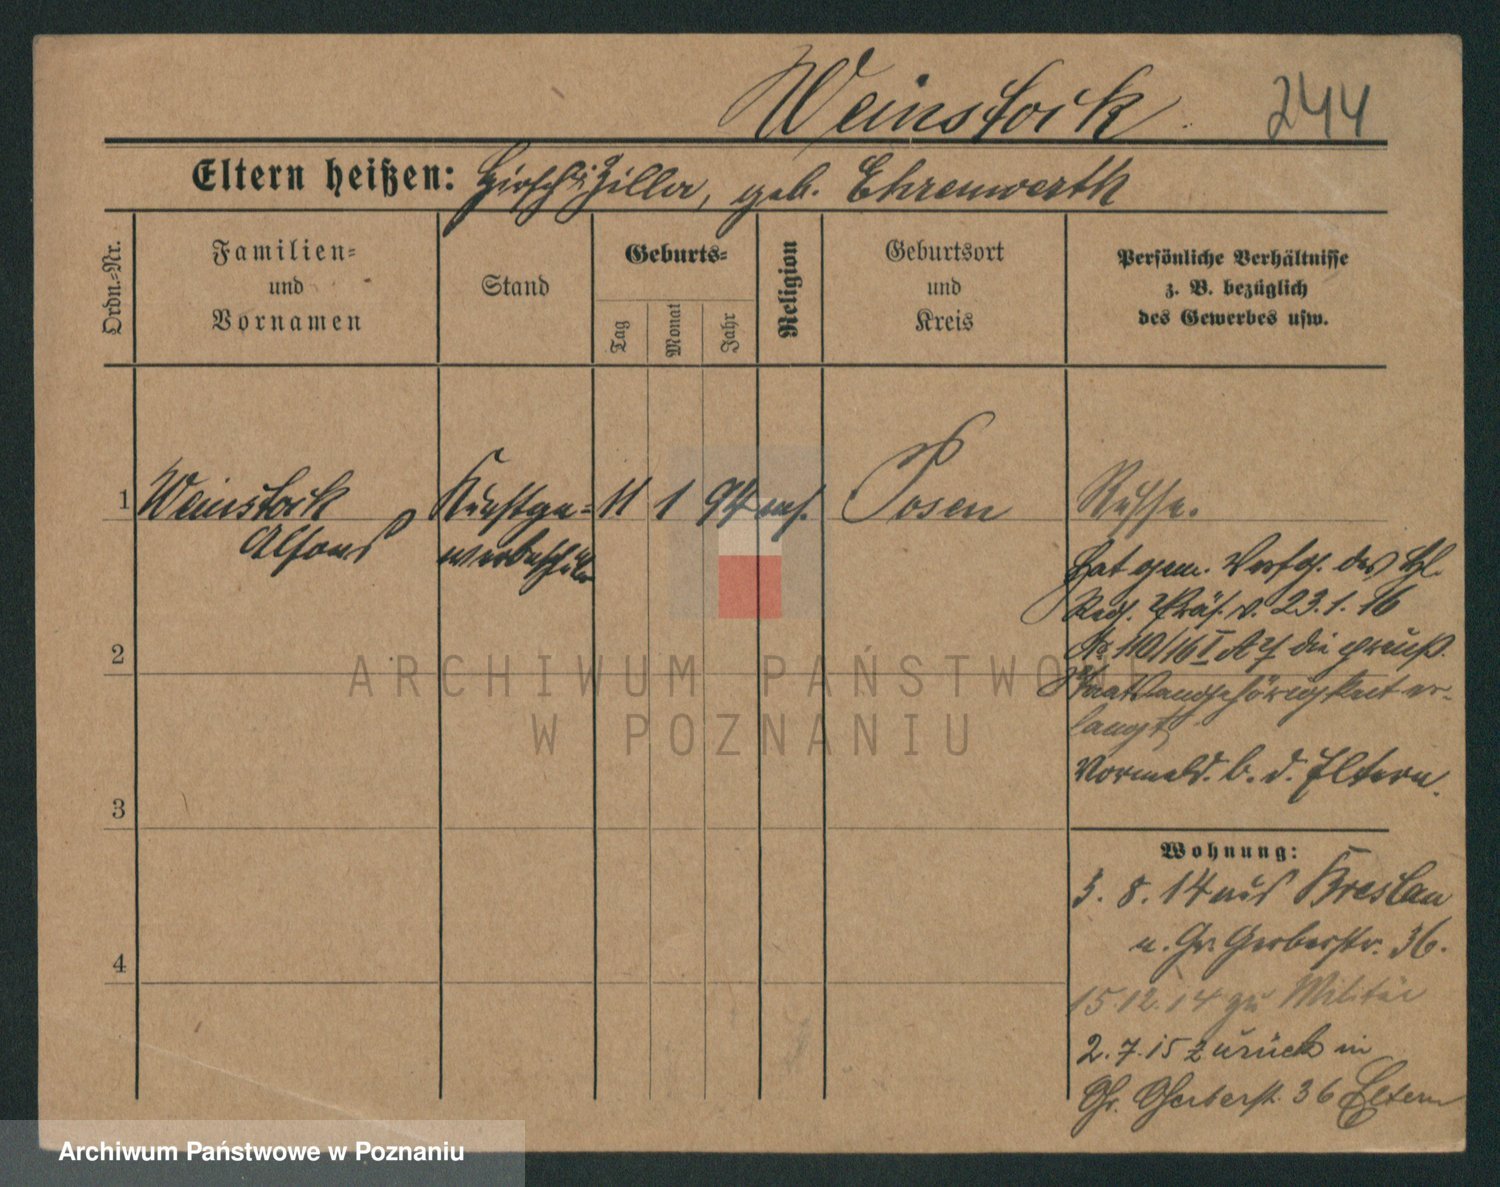 Weinstock 244
Eltern heißen: Hirsch u. Ziller, geb. Ehrenwerth
Ordn.-Nr.
Familien- und Vornamen
Stand
Geburts-
Tag
Monat
Jahr
Religion
Geburtsort und Kreis
Persönliche Verhältnisse
z. B. bezüglich
des Gewerbes usw.
1 Weinstock Kunstge- 11 1 94 mos. Posen Russe.
Alfons werbeschüler
Hat gem. Verfg. des Hl.
Reg. Präs. v. 23.1.16
No 110/16 I A 7 die preuß.
2
Staatsangehörigkeit er-
langt.
Vormals. b. d. Eltern.
3
Wohnung:
3. 8. 14 aus Breslau
n. Gr. Gerberstr. 36.
4
15.12.14 zu Militär
2.7.15 zurück in
Gr. Gerberstr. 36 Eltern
ARCHIWUM PAŃSTWOWE
W POZNANIU
Archiwum Państwowe w Poznaniu